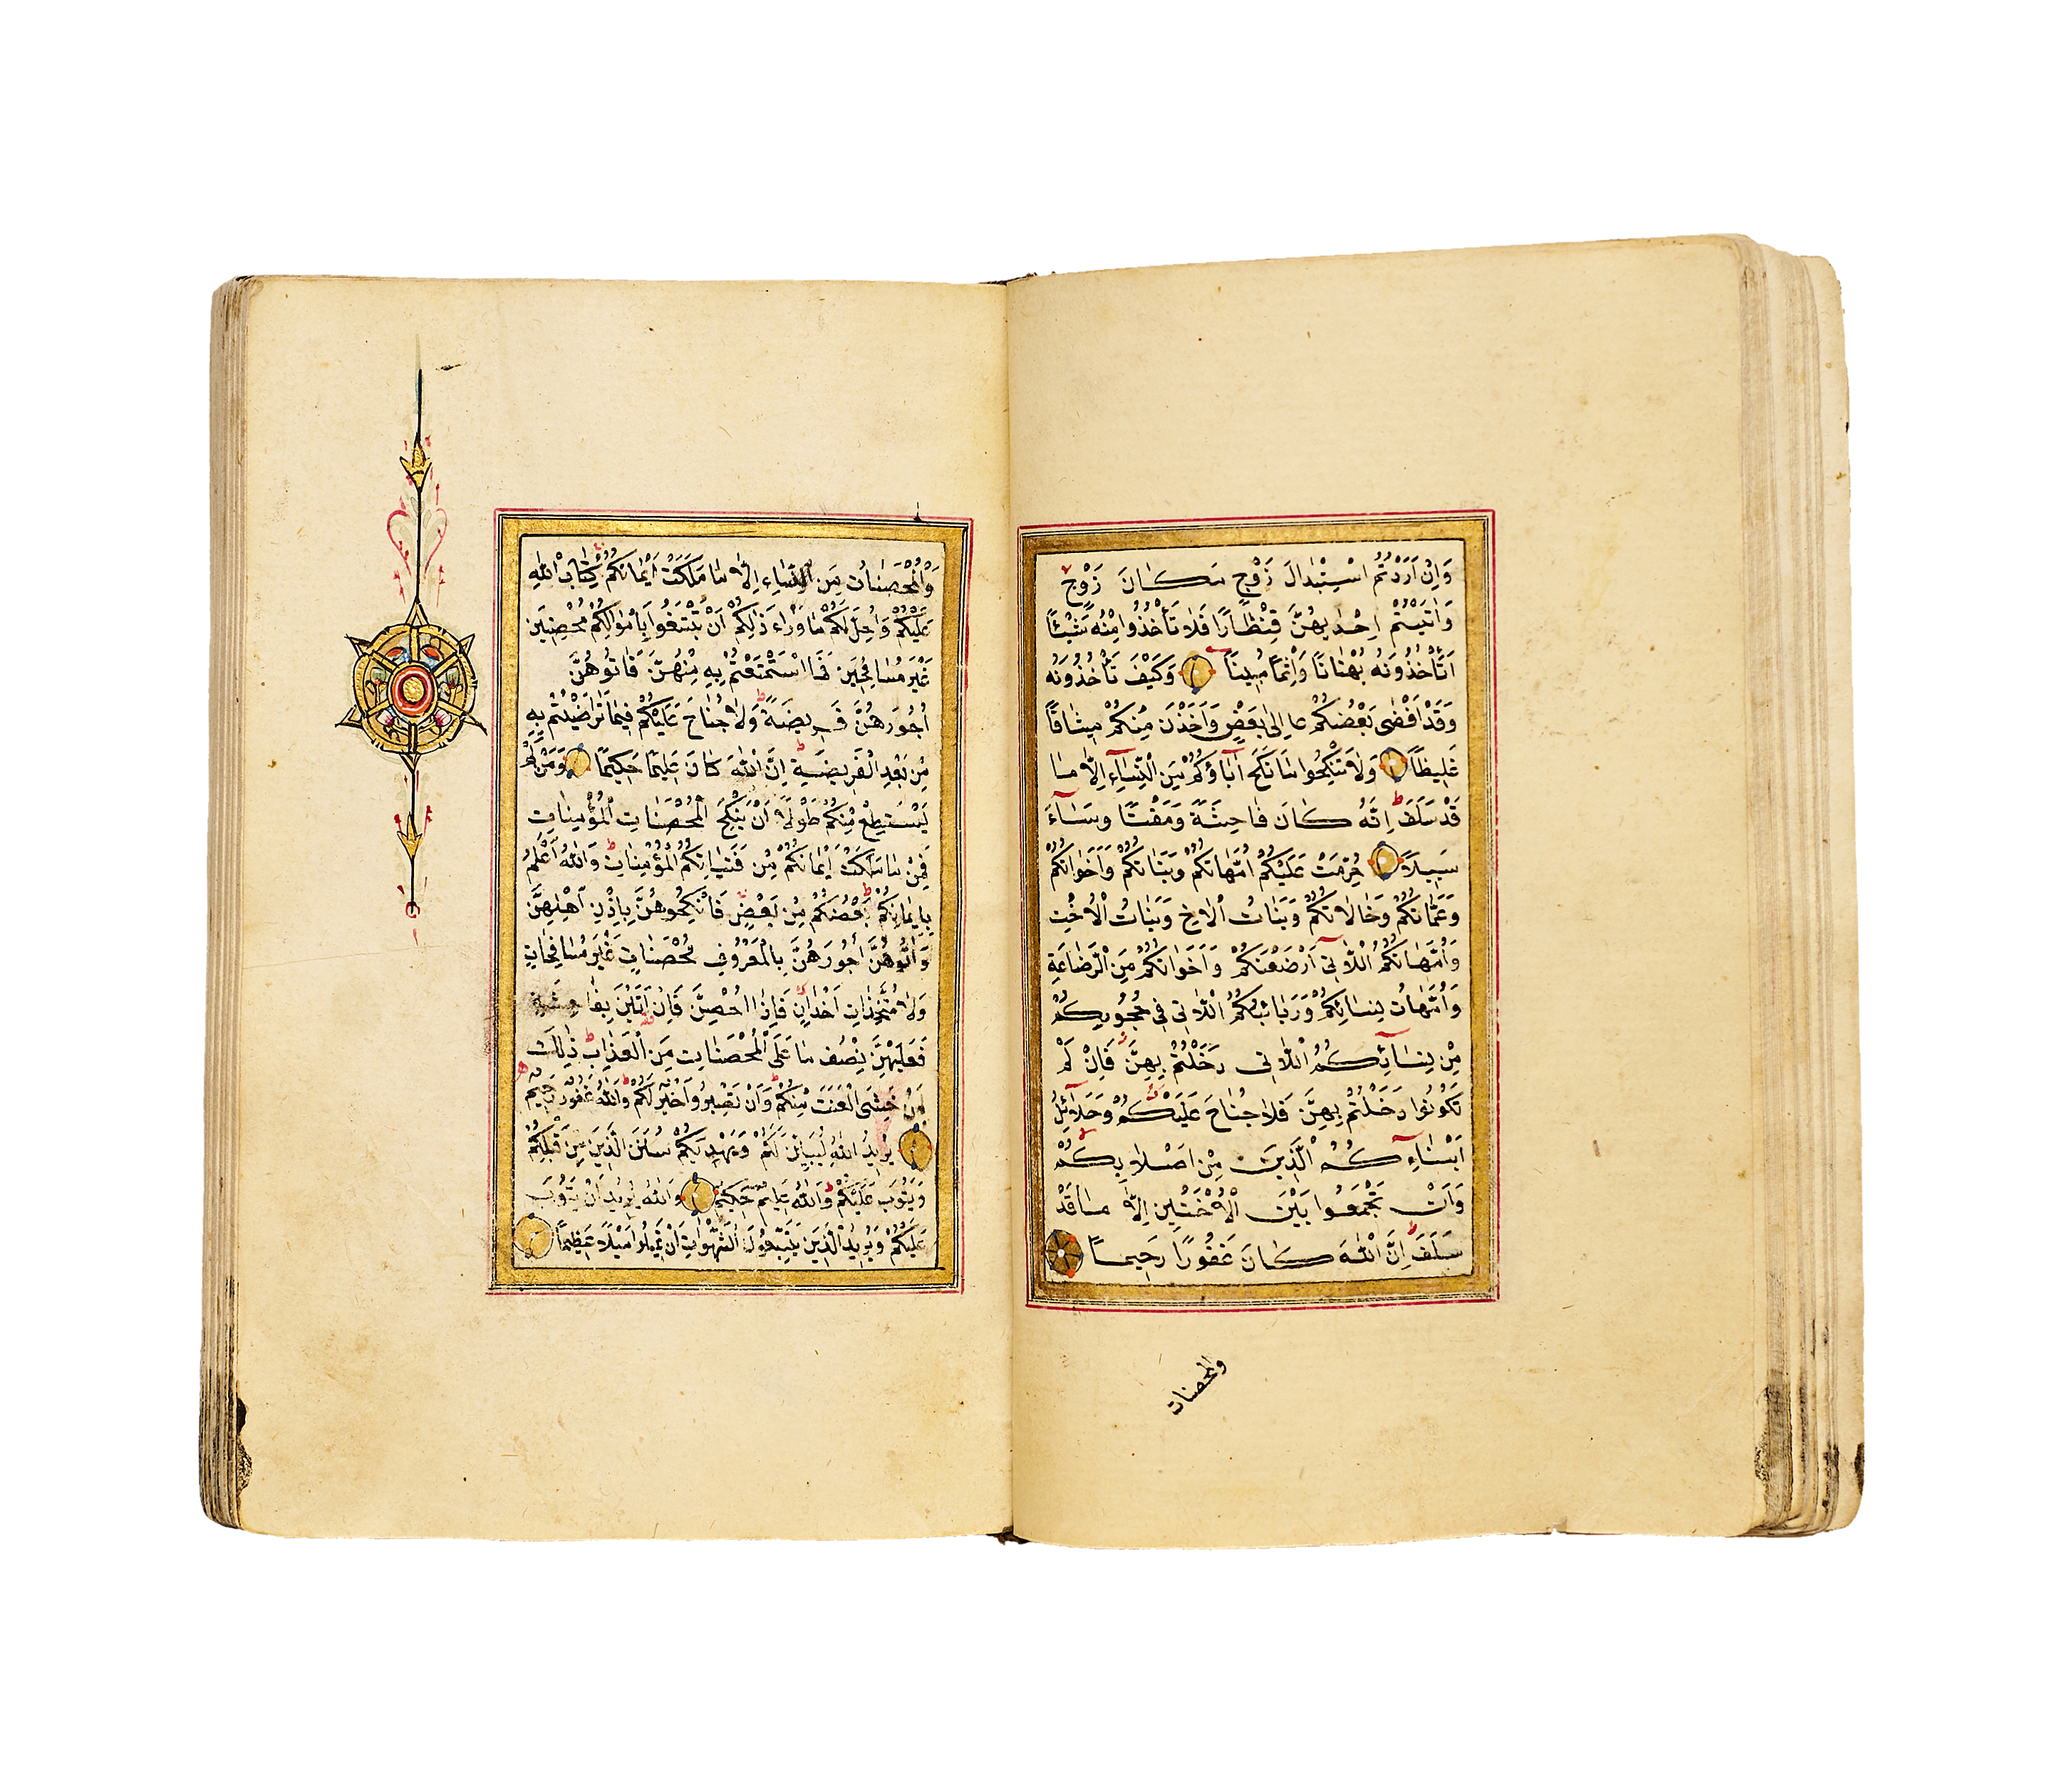 وَاِنْ اَرَدْتُمُ اسْتِبْدَالَ زَوْجٍ مَكَانَ زَوْجٍ
وَاٰتَيْتُمْ اِحْدٰيهُنَّ قِنْطَارًا فَلَا تَأْخُذُوا مِنْهُ شَيْـًٔا
اَتَأْخُذُونَهُ بُهْتَانًا وَاِثْمًا مُبِينًا وَكَيْفَ تَأْخُذُونَهُ
وَقَدْ اَفْضٰى بَعْضُكُمْ اِلٰى بَعْضٍ وَاَخَذْنَ مِنْكُمْ مِيثَاقًا
غَلِيظًا وَلَا تَنْكِحُوا مَا نَكَحَ اٰبَاؤُكُمْ مِنَ النِّسَآءِ اِلَّا مَا
قَدْ سَلَفَ اِنَّهُ كَانَ فَاحِشَةً وَمَقْتًا وَسَآءَ
سَبِيلًا حُرِّمَتْ عَلَيْكُمْ اُمَّهَاتُكُمْ وَبَنَاتُكُمْ وَاَخَوَاتُكُمْ
وَعَمَّاتُكُمْ وَخَالَاتُكُمْ وَبَنَاتُ الْاَخِ وَبَنَاتُ الْاُخْتِ
وَاُمَّهَاتُكُمُ اللَّاتِى اَرْضَعْنَكُمْ وَاَخَوَاتُكُمْ مِنَ الرَّضَاعَةِ
وَاُمَّهَاتُ نِسَائِكُمْ وَرَبَائِبُكُمُ اللَّاتِى فِى حُجُورِكُمْ
مِنْ نِسَآئِكُمُ اللَّاتِى دَخَلْتُمْ بِهِنَّ فَاِنْ لَمْ
تَكُونُوا دَخَلْتُمْ بِهِنَّ فَلَا جُنَاحَ عَلَيْكُمْ وَحَلَآئِلُ
اَبْنَآءِكُمُ الَّذِينَ مِنْ اَصْلَابِكُمْ
وَاَنْ تَجْمَعُوا بَيْنَ الْاُخْتَيْنِ اِلَّا مَا قَدْ
سَلَفَ اِنَّ اللّٰهَ كَانَ غَفُورًا رَحِيمًا
والمحصنات
وَالْمُحْصَنَاتُ مِنَ النِّسَاءِ اِلَّا مَا مَلَكَتْ اَيْمَانُكُمْ كِتَابَ اللّٰهِ
عَلَيْكُمْ وَاُحِلَّ لَكُمْ مَا وَرَاءَ ذٰلِكُمْ اَنْ تَبْتَغُوا بِاَمْوَالِكُمْ مُحْصِنِينَ
غَيْرَ مُسَافِحِينَ فَمَا اسْتَمْتَعْتُمْ بِهِ مِنْهُنَّ فَاٰتُوهُنَّ
اُجُورَهُنَّ فَرِيضَةً وَلَا جُنَاحَ عَلَيْكُمْ فِيمَا تَرَاضَيْتُمْ بِهِ
مِنْ بَعْدِ الْفَرِيضَةِ اِنَّ اللّٰهَ كَانَ عَلِيمًا حَكِيمًا وَمَنْ لَمْ
يَسْتَطِعْ مِنْكُمْ طَوْلًا اَنْ يَنْكِحَ الْمُحْصَنَاتِ الْمُؤْمِنَاتِ
فَمِنْ مَا مَلَكَتْ اَيْمَانُكُمْ مِنْ فَتَيَاتِكُمُ الْمُؤْمِنَاتِ وَاللّٰهُ اَعْلَمُ
بِاِيمَانِكُمْ بَعْضُكُمْ مِنْ بَعْضٍ فَانْكِحُوهُنَّ بِاِذْنِ اَهْلِهِنَّ
وَاٰتُوهُنَّ اُجُورَهُنَّ بِالْمَعْرُوفِ مُحْصَنَاتٍ غَيْرَ مُسَافِحَاتٍ
وَلَا مُتَّخِذَاتِ اَخْدَانٍ فَاِذَا اُحْصِنَّ فَاِنْ اَتَيْنَ بِفَاحِشَةٍ
فَعَلَيْهِنَّ نِصْفُ مَا عَلَى الْمُحْصَنَاتِ مِنَ الْعَذَابِ ذٰلِكَ
لِمَنْ خَشِىَ الْعَنَتَ مِنْكُمْ وَاَنْ تَصْبِرُوا خَيْرٌ لَكُمْ وَاللّٰهُ غَفُورٌ رَحِيمٌ
يُرِيدُ اللّٰهُ لِيُبَيِّنَ لَكُمْ وَيَهْدِيَكُمْ سُنَنَ الَّذِينَ مِنْ قَبْلِكُمْ
وَيَتُوبَ عَلَيْكُمْ وَاللّٰهُ عَلِيمٌ حَكِيمٌ وَاللّٰهُ يُرِيدُ اَنْ يَتُوبَ
عَلَيْكُمْ وَيُرِيدُ الَّذِينَ يَتَّبِعُونَ الشَّهَوَاتِ اَنْ تَمِيلُوا مَيْلًا عَظِيمًا